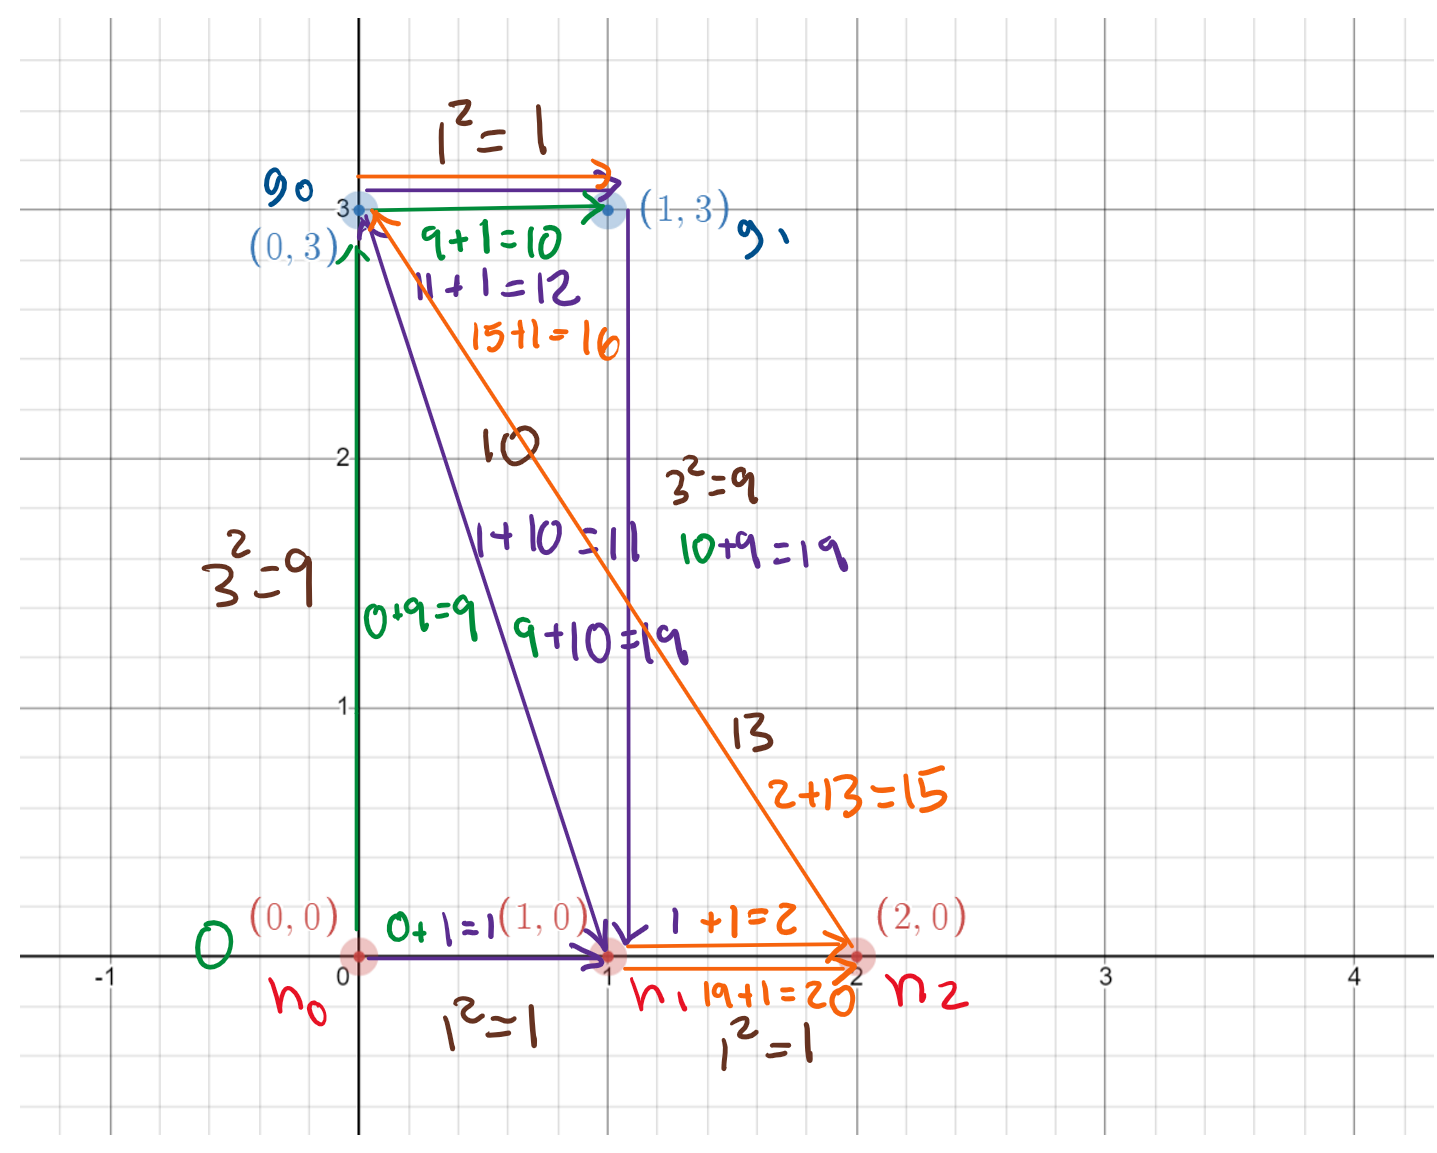 1² = 1
g₀
3
(1, 3)
g₁
(0, 3)
9+1=10
11+1=12
15+1=16
10
2
3²=9
1+10=11
10+9=19
3²=9
0+9=9
9+10=19
1
13
2+13=15
0
(0, 0)
0+1=1
(1, 0)
1+1=2
(2, 0)
-1
0
1
2
3
4
n₀
n₁
19+1=20
n₂
1²=1
1²=1